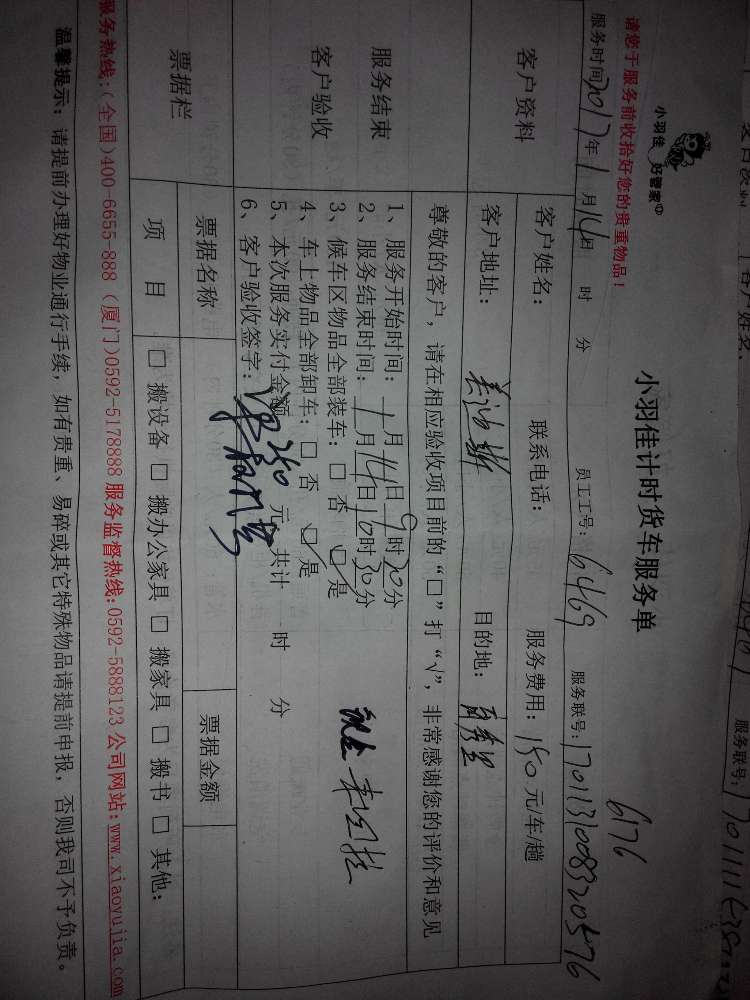 小羽佳 好管家
请您于服务前收拾好您的贵重物品！
小羽佳计时货车服务单
6176
服务时间2017年1月14日 时 分 员工工号：6469 服务联号：
客户资料 客户姓名： 联系电话： 服务费用：150元/车/趟
客户地址： 目的地：
尊敬的客户，请在相应验收项目前的“□”打“√”，非常感谢您的评价和意见
服务结束
客户验收
1、服务开始时间：1月14日9时20分
2、服务结束时间：1月14日10时30分
3、候车区物品全部装车：□ 否 ☑ 是
4、车上物品全部卸车：□ 否 ☑ 是
5、本次服务实付金额 250 元，共计 时 分
6、客户验收签字：
票据栏 票据名称 票据金额
项目 □ 搬设备 □ 搬办公家具 □ 搬家具 □ 搬书 □ 其他：
服务热线：(全国)400-6655-888 (厦门)0592-5178888 服务监督热线：0592-5888123 公司网站：www.xiaoyujia.com
温馨提示：请提前办理好物业通行手续，如有贵重、易碎或其它特殊物品请提前申报，否则我司不予负责。